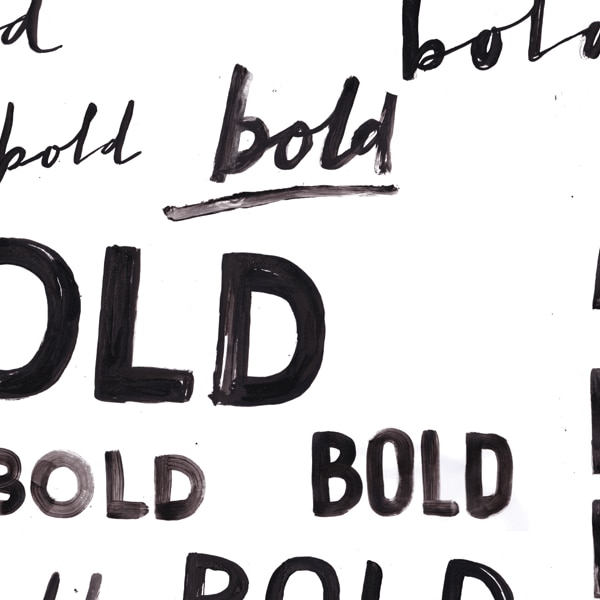 d
bold
bold
bold
OLD
BOLD
BOLD
BOLD